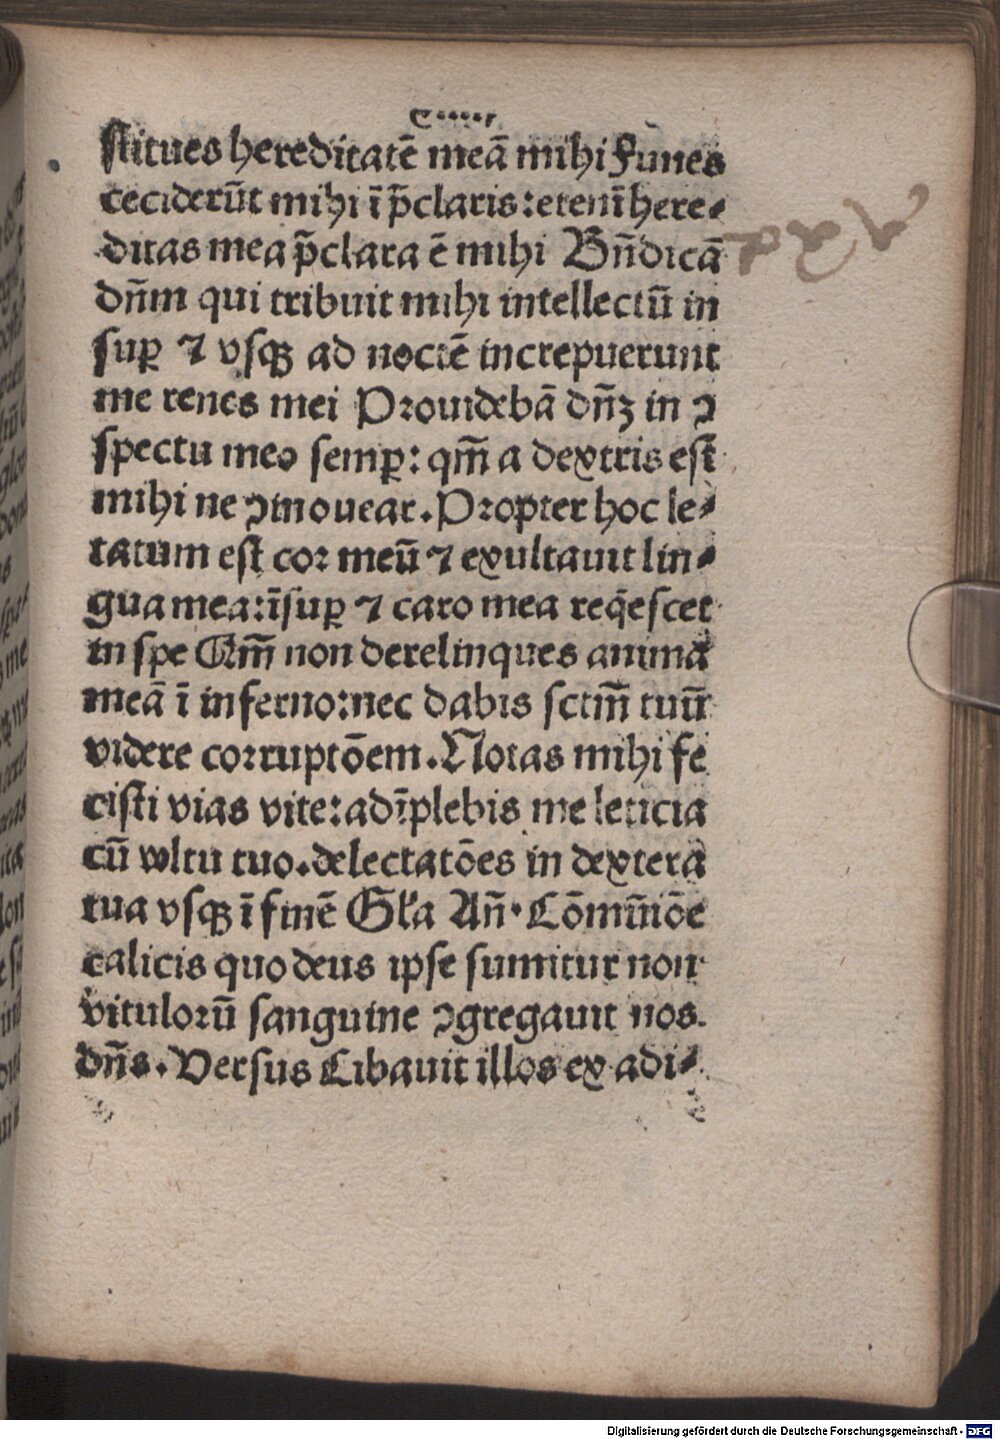 stitues hereditatē meā mihi Funes
ceciderūt mihi ī p̄claris: etenī here⸗
ditas mea p̄clara ē mihi Bn̄dicā
dn̄m qui tribuit mihi intellectū in
suꝑ ⁊ vsqꝫ ad noctē increpuerunt
me renes mei Prouidebā dn̄ꝫ in ↄ
spectu meo semꝑ: qm̄ a dextris est̄
mihi ne ↄmouear. Propter hoc le⸗
tatum est cor meū ⁊ exultauit lin⸗
gua mea: īsuꝑ ⁊ caro mea reqͥescet
in spe Qm̄ non derelinques animā
meā ī inferno: nec dabis sctm̄ tuū
videre corruptōem. Notas mihi fe
cisti vias vite: adīplebis me leticia
cū wltu tuo. delectatōes in dextera
tua vsqꝫ ī finē Gl̄a An̄. Cōmūiōe
calicis quo deus ipse sumitur non
vitulorū sanguine ↄgregauit nos
dn̄s. Versus Cibauit illos ex adi⸗
Digitalisierung gefördert durch die Deutsche Forschungsgemeinschaft - DFG